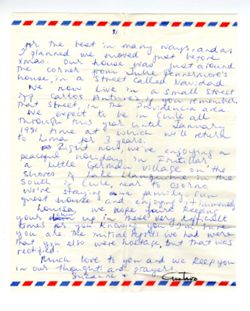 2)
for the best in many ways, and as
I planned we moved just before
Xmas. Our house was just around
the corner from Julie
house, in a street called Navidad.
We now live in a small street
that street, in the Providencia area
We expect to be in Chile all
through this year until January
1981, time at which we'll return
to Lima for 2 years.
Right now, we're enjoying a
peaceful holiday in Frutillar,
a little German village on the
shores of Lake Llanquihue in the
South of Chile, near to Osorno
We're staying at some
guest house and enjoying it immensely
Louisa, we hope you're keeping
your up in these very difficult
times for you. Knowing you
you are, the initial reports we had were
that you also were hostage, but that was
rectified.
Much love to you and we keep you
in our thoughts and prayers
Gustavo